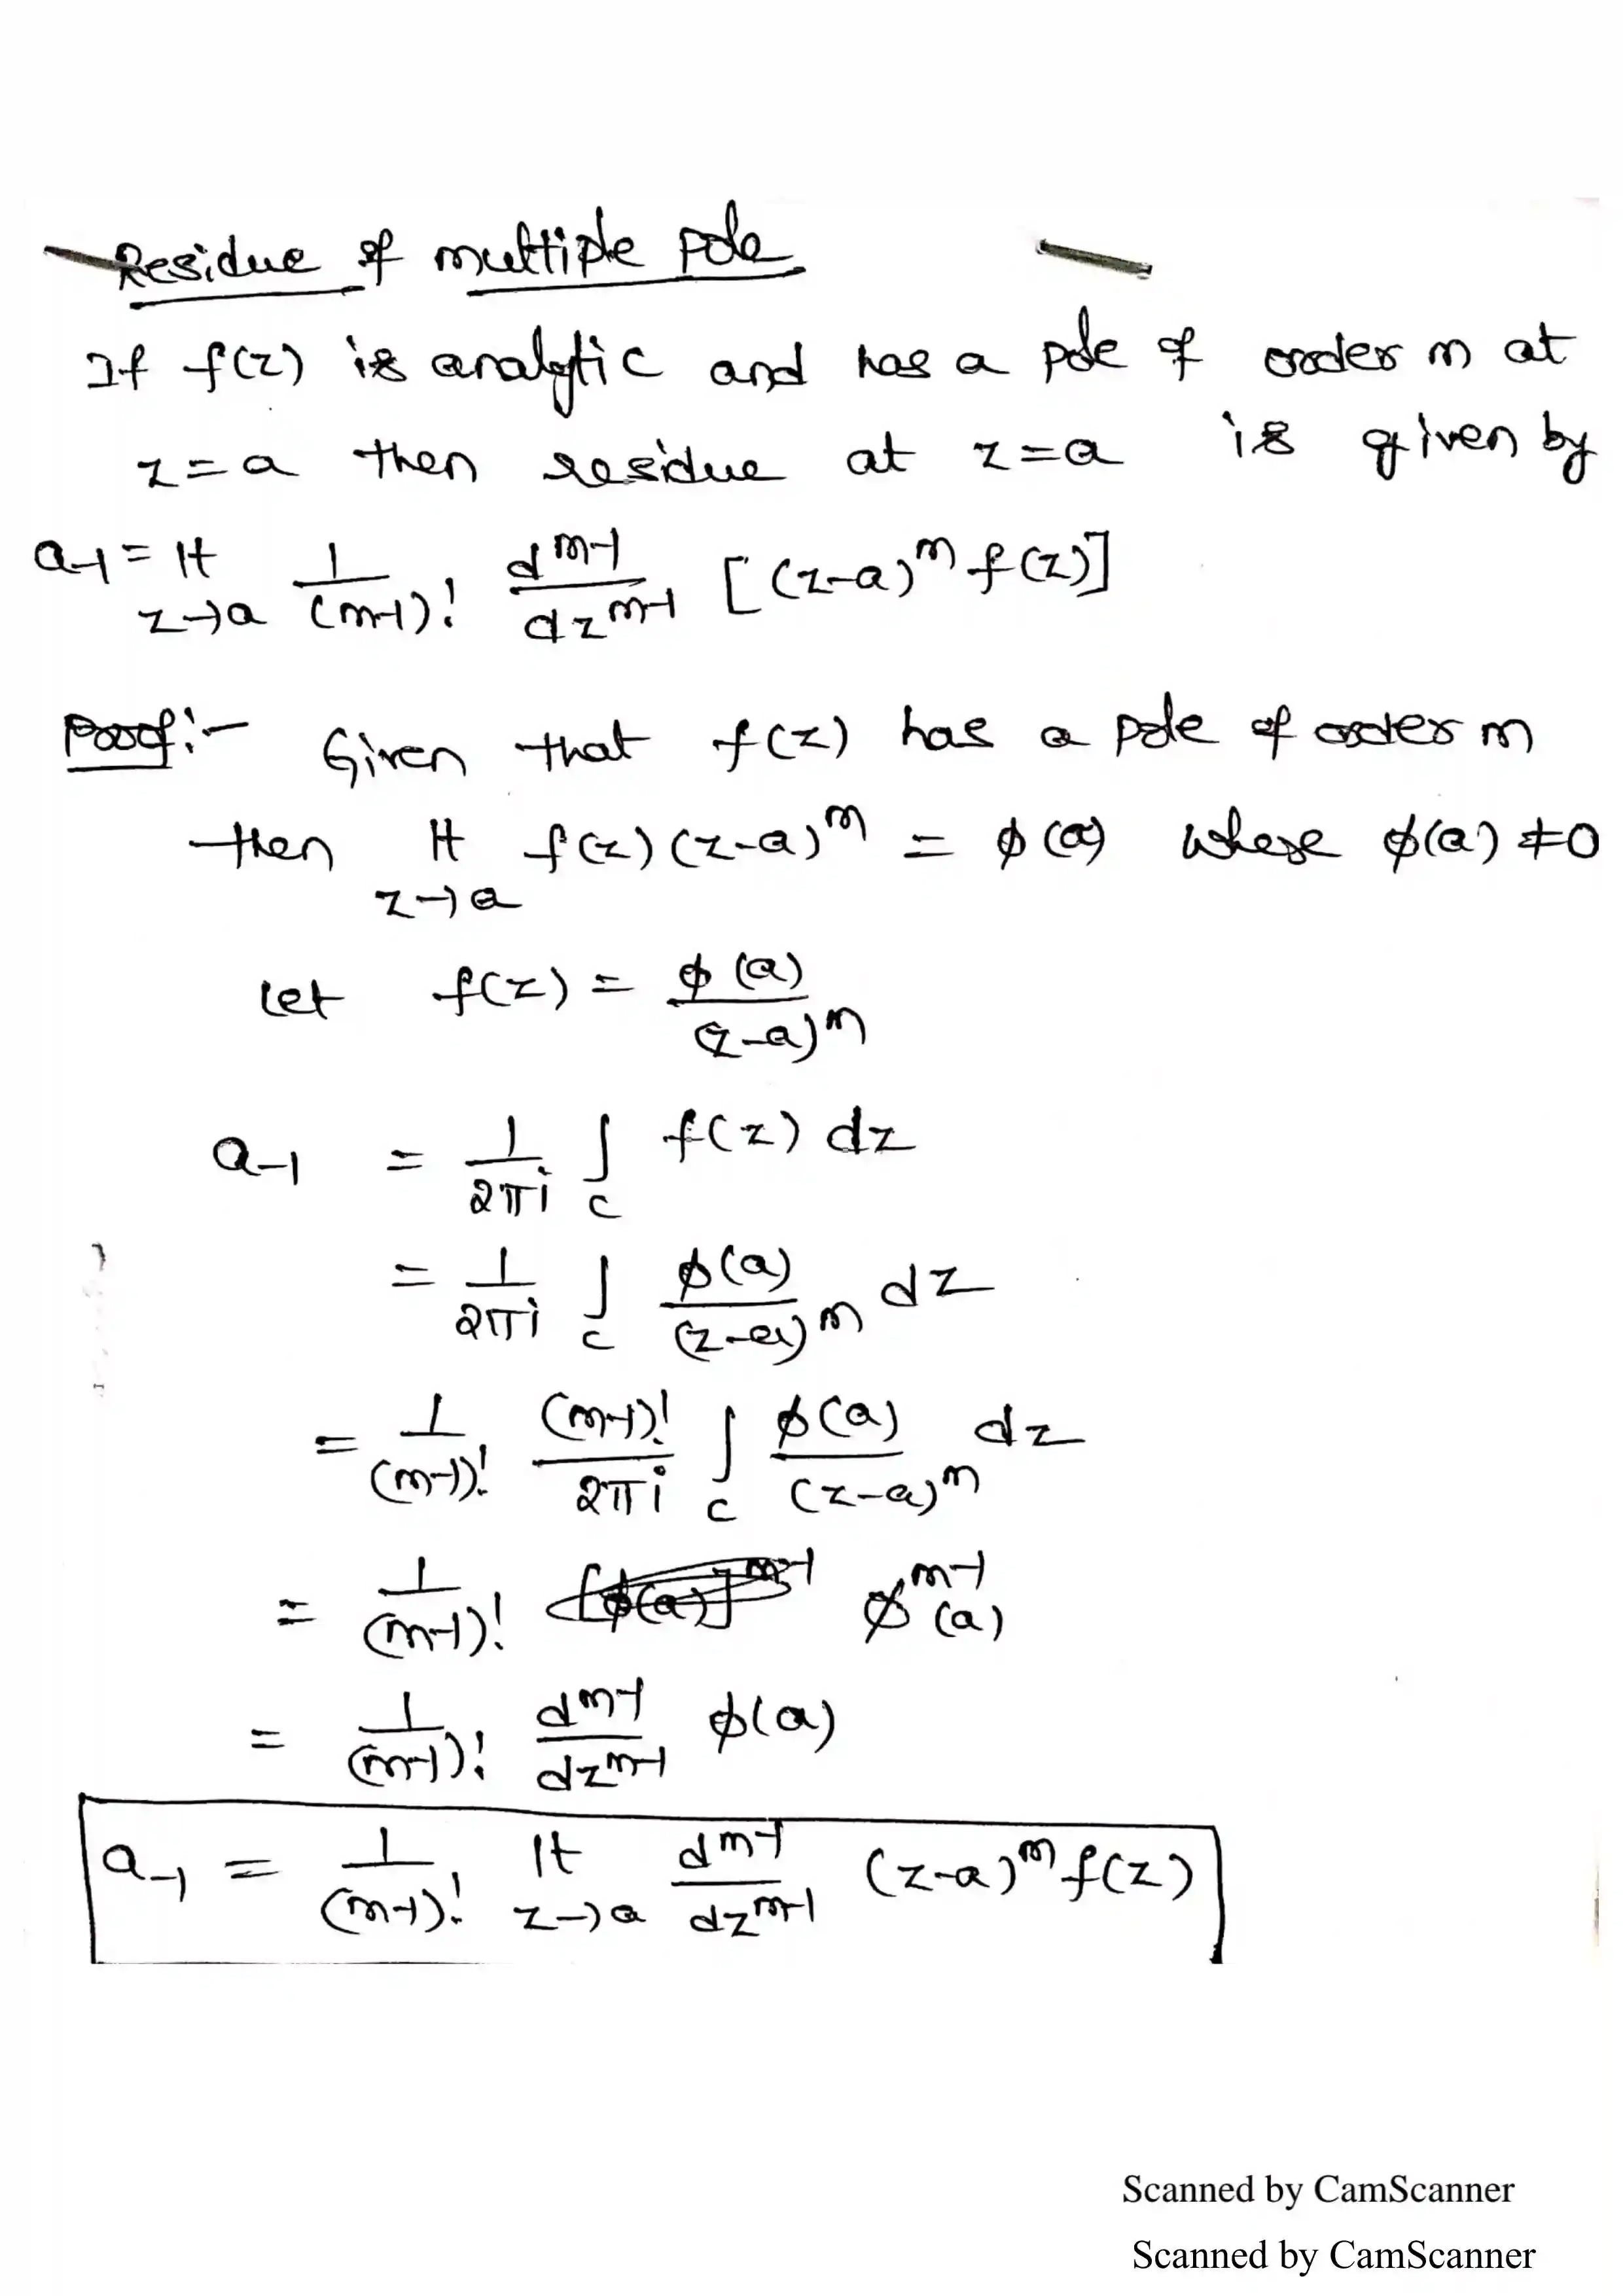 Residue of multiple pole
If f(z) is analytic and has a pole of order m at
z=a then residue at z=a is given by
a₋₁ = lt z→a 1/(m-1)! d^(m-1)/dz^(m-1) [(z-a)^m f(z)]
Proof:- Given that f(z) has a pole of order m
then lt z→a f(z)(z-a)^m = φ(a) where φ(a) ≠ 0
Let f(z) = φ(a)/(z-a)^m
a₋₁ = 1/2πi ∫c f(z) dz
= 1/2πi ∫c φ(a)/(z-a)^m dz
= 1/(m-1)! (m-1)!/2πi ∫c φ(a)/(z-a)^m dz
= 1/(m-1)! φ^(m-1)(a)
= 1/(m-1)! d^(m-1)/dz^(m-1) φ(a)
a₋₁ = 1/(m-1)! lt z→a d^(m-1)/dz^(m-1) (z-a)^m f(z)
Scanned by CamScanner
Scanned by CamScanner